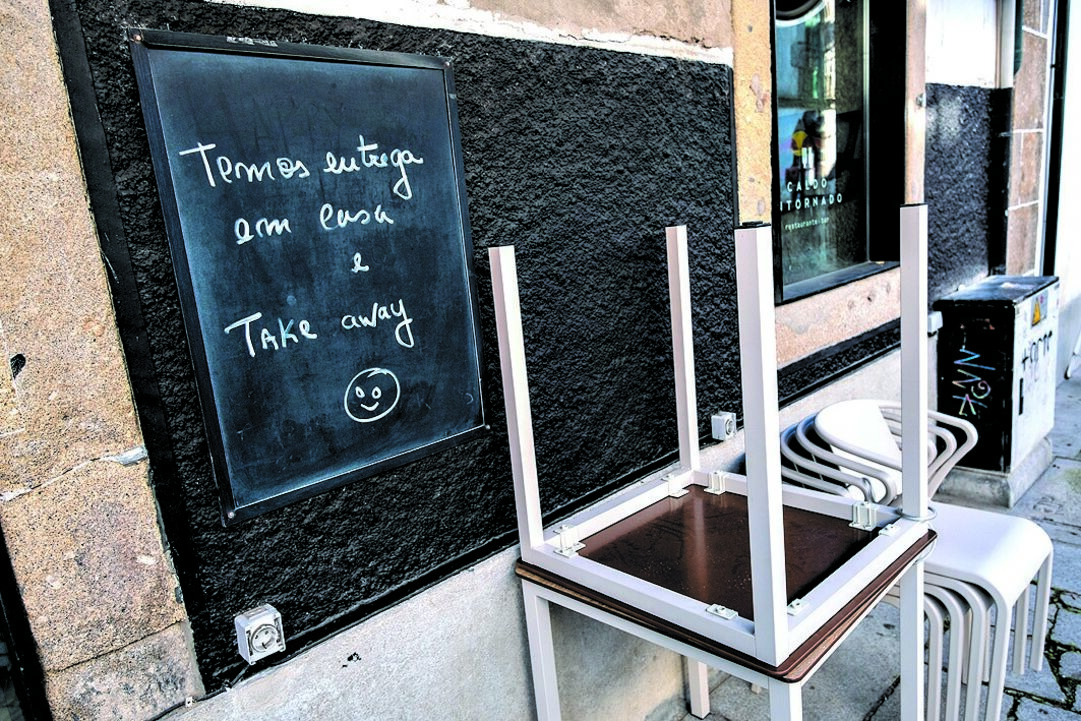 Temos entrega
em casa
e
TAKe away
CALDO
restaurante·bar